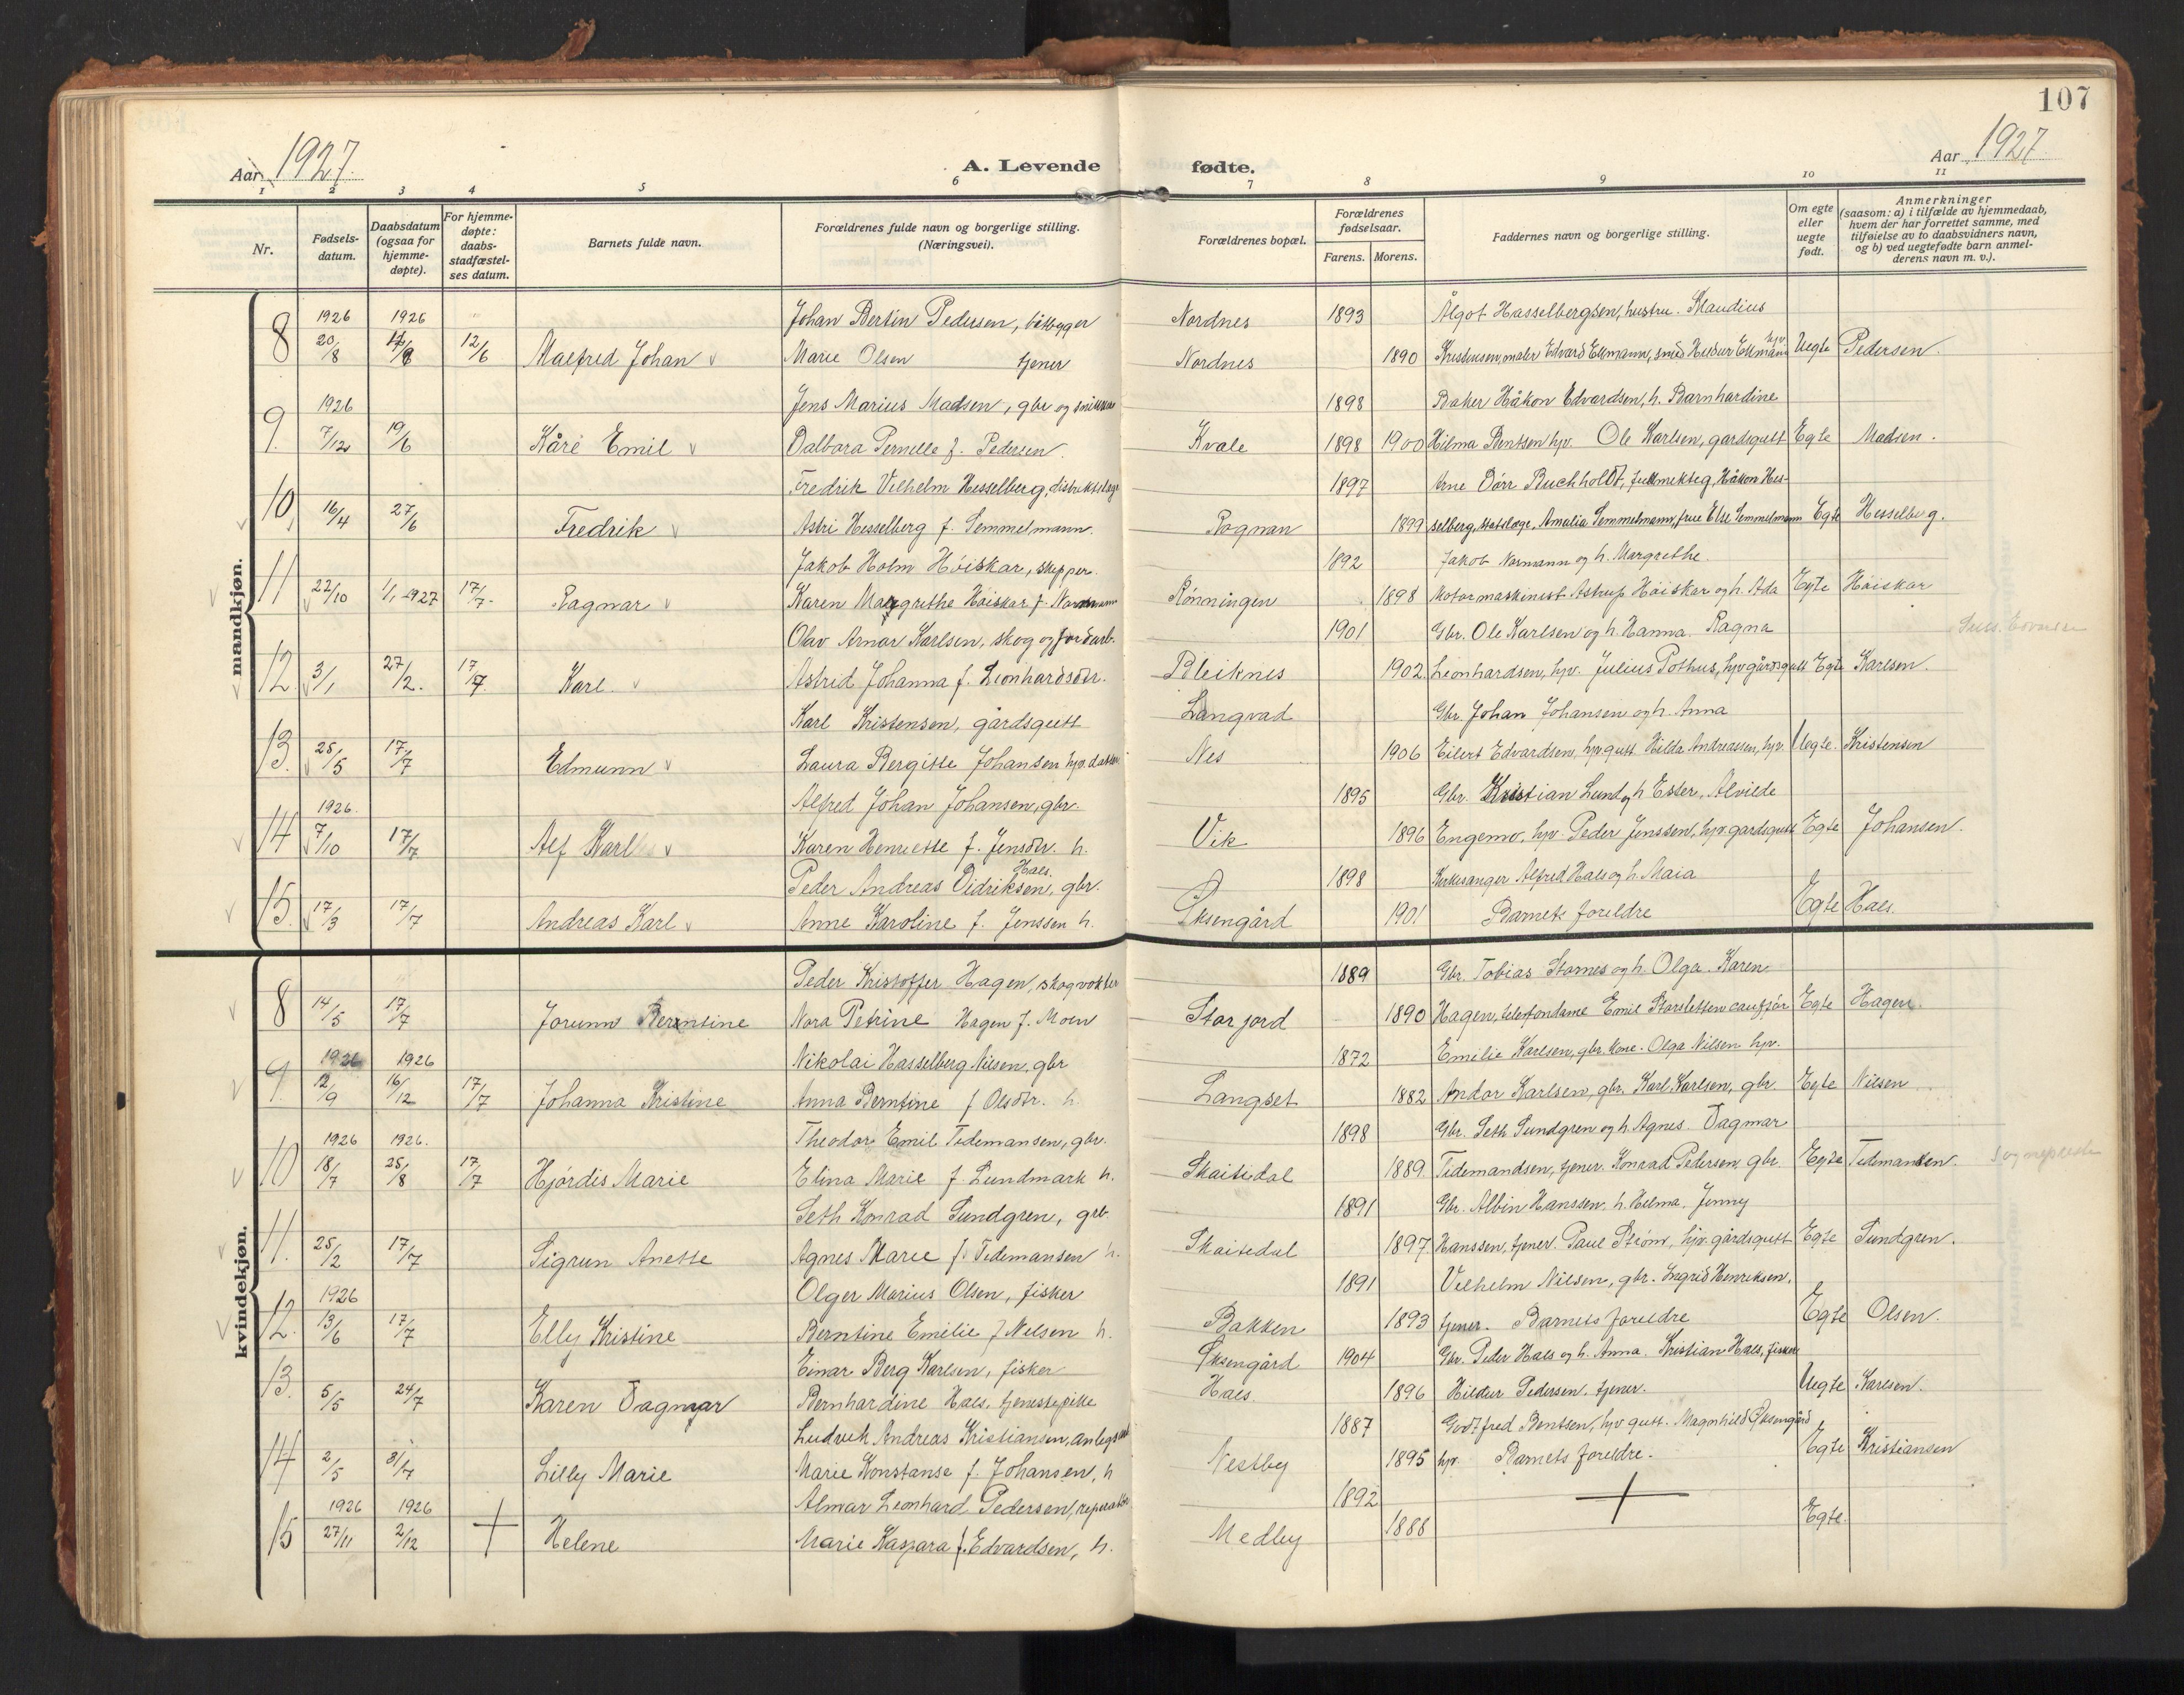 107
Aar 1927.
A. Levende fødte.
Aar 1927.
1 2 3 4 5 6 7 8 9 10 11
Nr.
Fødsels-
datum.
Daabsdatum
(ogsaa for
hjemme-
døpte).
For hjemme-
døpte:
daabs-
stadfæstel-
ses datum.
Barnets fulde navn.
Forældrenes fulde navn og borgerlige stilling.
(Næringsvei).
Forældrenes bopæl.
Forældrenes
fødselsaar.
Farens. Morens.
Faddernes navn og borgerlige stilling.
Om egte
eller
uegte
født.
Anmerkninger
(saasom: a) i tilfælde av hjemmedaab,
hvem der har forrettet samme, med
tilføielse av to daabsvidners navn,
og b) ved uegtefødte barn anmel-
derens navn m. v.).
mandkjøn.
1926 1926 Johan Bertin Pedersen, båtbygger Nordnes 1893 Algot Hasselbergsen, hustru. Klaudius
8 20/8 12/6 Malfred Johan Marie Olsen tjener Nordnes 1890 Kristensen, maler Edvard Ellmann, smed Heidur Ellmann hjv. Uegte Pedersen.
1926 Jens Marius Madsen, gbr og snikker 1898 Baker Håkon Edvardsen, h. Barnhardine
9. 7/12 19/6 Kåre Emil Dalbara Pernelle f. Pedersen. Kvale 1898 1900 Hilma Bentsen hjv. Ole Karlsen, gardsgutt Egte Madsen.
Fredrik Vilhelm Hesselberg, distriktslæge 1897 Arne Dørr Buchholdt, fullmektig, Håkon Hes-
10 16/4 27/6 Fredrik Astri Hesselberg f. Semmelmann. Rognan 1899 selberg, statslæge, Amalia Semmelmann, frue Else Semmelmann Egte Hesselberg.
Jakob Holm Høiskar, skipper. 1892 Jakob Normann og h. Margrethe.
11 22/10 1/1 1927 17/7 Ragnar Karen Margrethe Høiskar f. Normann Rønningen 1898 Motormaskinist Astrup Høiskar og h. Ada Egte Høiskar
Olav Arnor Karlsen, skog og jordarb. 1901 Gbr. Ole Karlsen og h. Hanna. Ragna
12 3/1 27/2. 17/7 Karl. Astrid Johanna f. Leonhardsdtr. Bleiknes 1902. Leonhardsen, hjv. Julius Pothus, hjv gårdsgutt Egte Karlsen.
Karl Kristensen, gårdsgutt Langvad Gbr. Johan Johansen og h. Anna
13. 25/5 17/7 Edmunn Laura Bergitte Johansen hjv. datter Nes 1906 Eilert Edvardsen, hjv gutt. Hilda Andreassen, hjv. Uegte. Kristensen
1926. Alfred Johan Johansen, gbr. 1895 Gbr. Kristian Lund og h Ester, Alvilde
14 7/10 17/7 Alf Karl Karen Henriette f. Jensdtr. h. Vik 1896 Engemo, hjv. Peder Jenssen, hjv. gardsgutt Egte Johansen.
Peder Andreas Didriksen Hals, gbr. 1898 Kirkesanger Alfred Hals og h. Maia
15. 17/3 17/7 Andreas Karl Anne Karoline f. Jenssen h. Øksengård 1901 Barnets foreldre Egte Hals.
kvindekjøn.
Peder Kristoffer Hagen, skogvokter 1889 Gbr. Tobias Stornes og h. Olga. Karen
8 14/5 17/7 Jorunn Berntine Nora Petrine Hagen f. Moen Storjord 1890 Hagen, telefondame Emil Storslettsen Egte Hagen.
1926 1926 Nikolai Hasselberg Nilsen, gbr 1872 Emilie Karlsen, gbr. kone. Olga Nilsen hjv.
9. 12/9 16/12 17/7 Johanna Kristine Anna Berntine f Olsdtr. h. Langset 1882 Andor Karlsen, gbr. Karl Karlsen, gbr. Egte Nilsen
1926 1926. Theodor Emil Tidemansen, gbr. 1898 Gbr. Seth Sundgren og h. Agnes. Dagmar
10 18/7 25/8 17/7 Hjørdis Marie Elina Marie f. Lundmark h. Skaitidal 1889. Tidemandsen, tjener. Konrad Pedersen gbr. Egte Tidemansen.
Seth Konrad Sundgren, grb. 1891 Gbr. Albin Hanssen. h. Hilma. Jenny
11. 25/2 17/7 Sigrun Anette Agnes Marie f. Tidemansen h. Skaitidal 1897. Hanssen, tjener. Paul Strøm, hjv. gårdsgutt Egte Sundgren.
1926 Olger Marius Olsen, fisker 1891 Vilhelm Nilsen, gbr. Ingrid Henriksen,
12. 13/6 17/7 Elly Kristine Berntine Emilie f Nilsen h. Bakken 1893 tjener. Barnets foreldre Egte Olsen.
Einar Berg Karlsen, fisker Øksengård 1904 Gbr. Peder Hals og h. Anna. Kristian Hals, fisker
13. 5/5 24/7 Karen Dagmar Bernhardine Hals, tjenestepike Hals. 1896 Hildur Pedersen, tjener. Uegte Karlsen.
Ludvik Andreas Kristiansen, 1887 Godtfred Bentsen, hjv gutt. Magnhild Øksengård
14 2/5 31/7 Lilly Marie Marie Konstanse f. Johansen, h Nestby 1895 hjv. Barnets foreldre. Egte Kristiansen
1926 1926 Almar Leonhard Pedersen, reparatør 1892
15 27/11 2/12 Helene Marie Kaspara f. Edvardsen, h. Medby 1888 Egte.